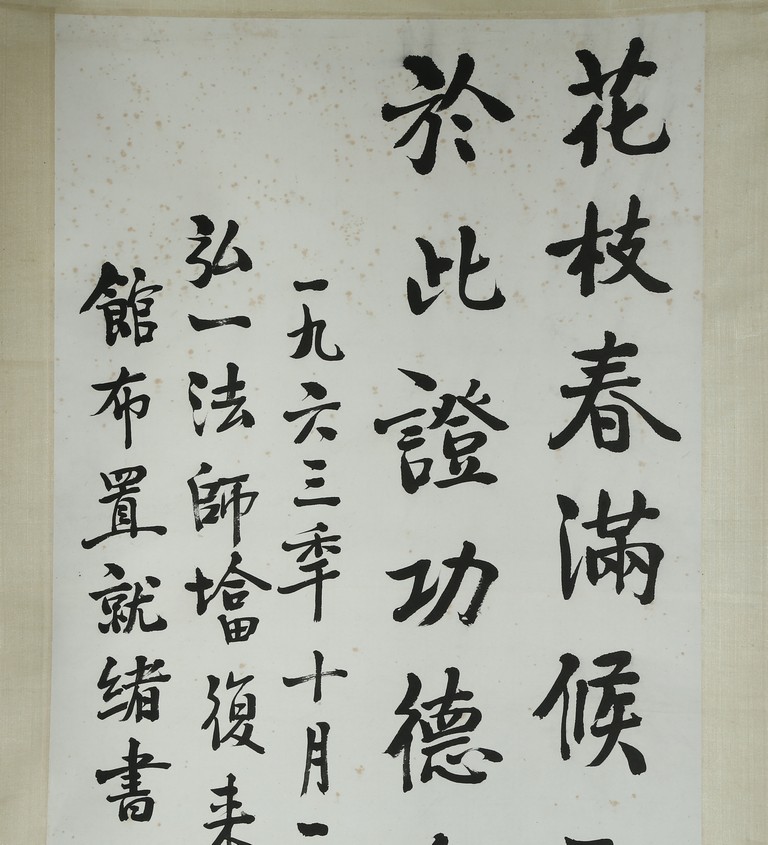 花枝春滿候
於此證功德
一九六三秊十月一
弘一法師墖復来
館布置就緒書